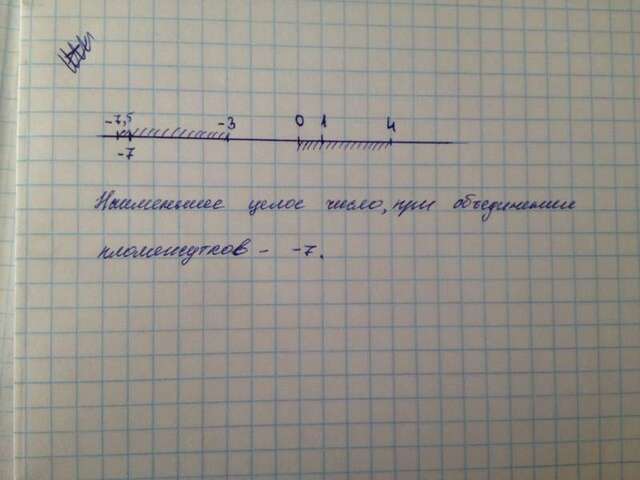 -7,5 -3 0 1 4
-7
Наименьшее целое число, при объединении
пломежутков - -7.